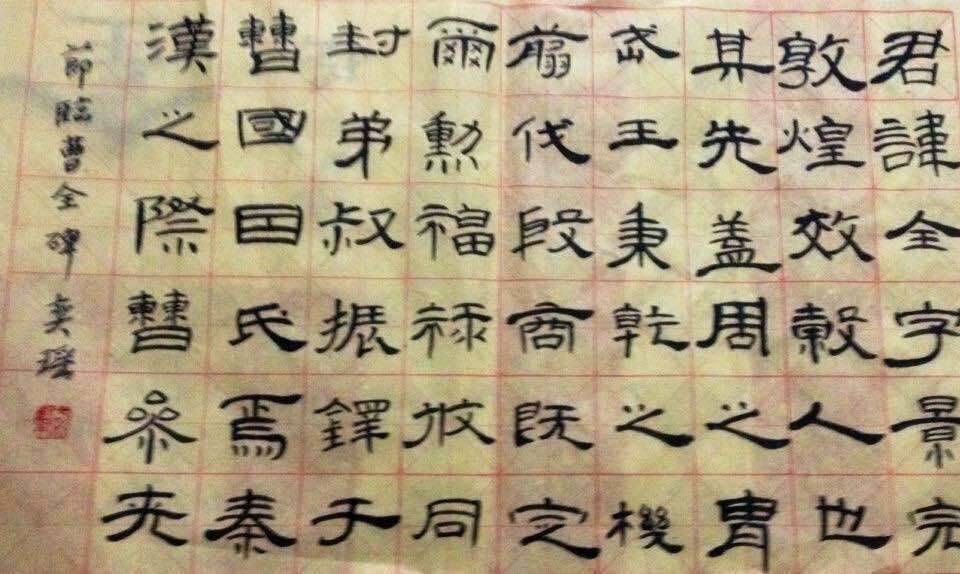 君諱全字景完
敦煌效穀人也
其先盖周之胄
武王秉乾之機
翦伐殷商既定
爾勳福祿攸同
封弟叔振鐸于
曹國因氏焉秦
漢之際曹參夾
節臨曹全碑 奕瑶